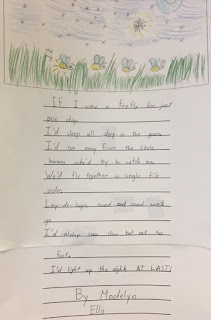 If I were a firefly for just
one day.
I'd sleep all day in the grass
I'd run away from the little
humans who'd try to catch me.
We'd fly together in single file
order.
Loop-de-loops, round and round we'd
go
I'd always slow down but not too
fast.
I'd light up the night AT LAST!
By Madelyn
Ella